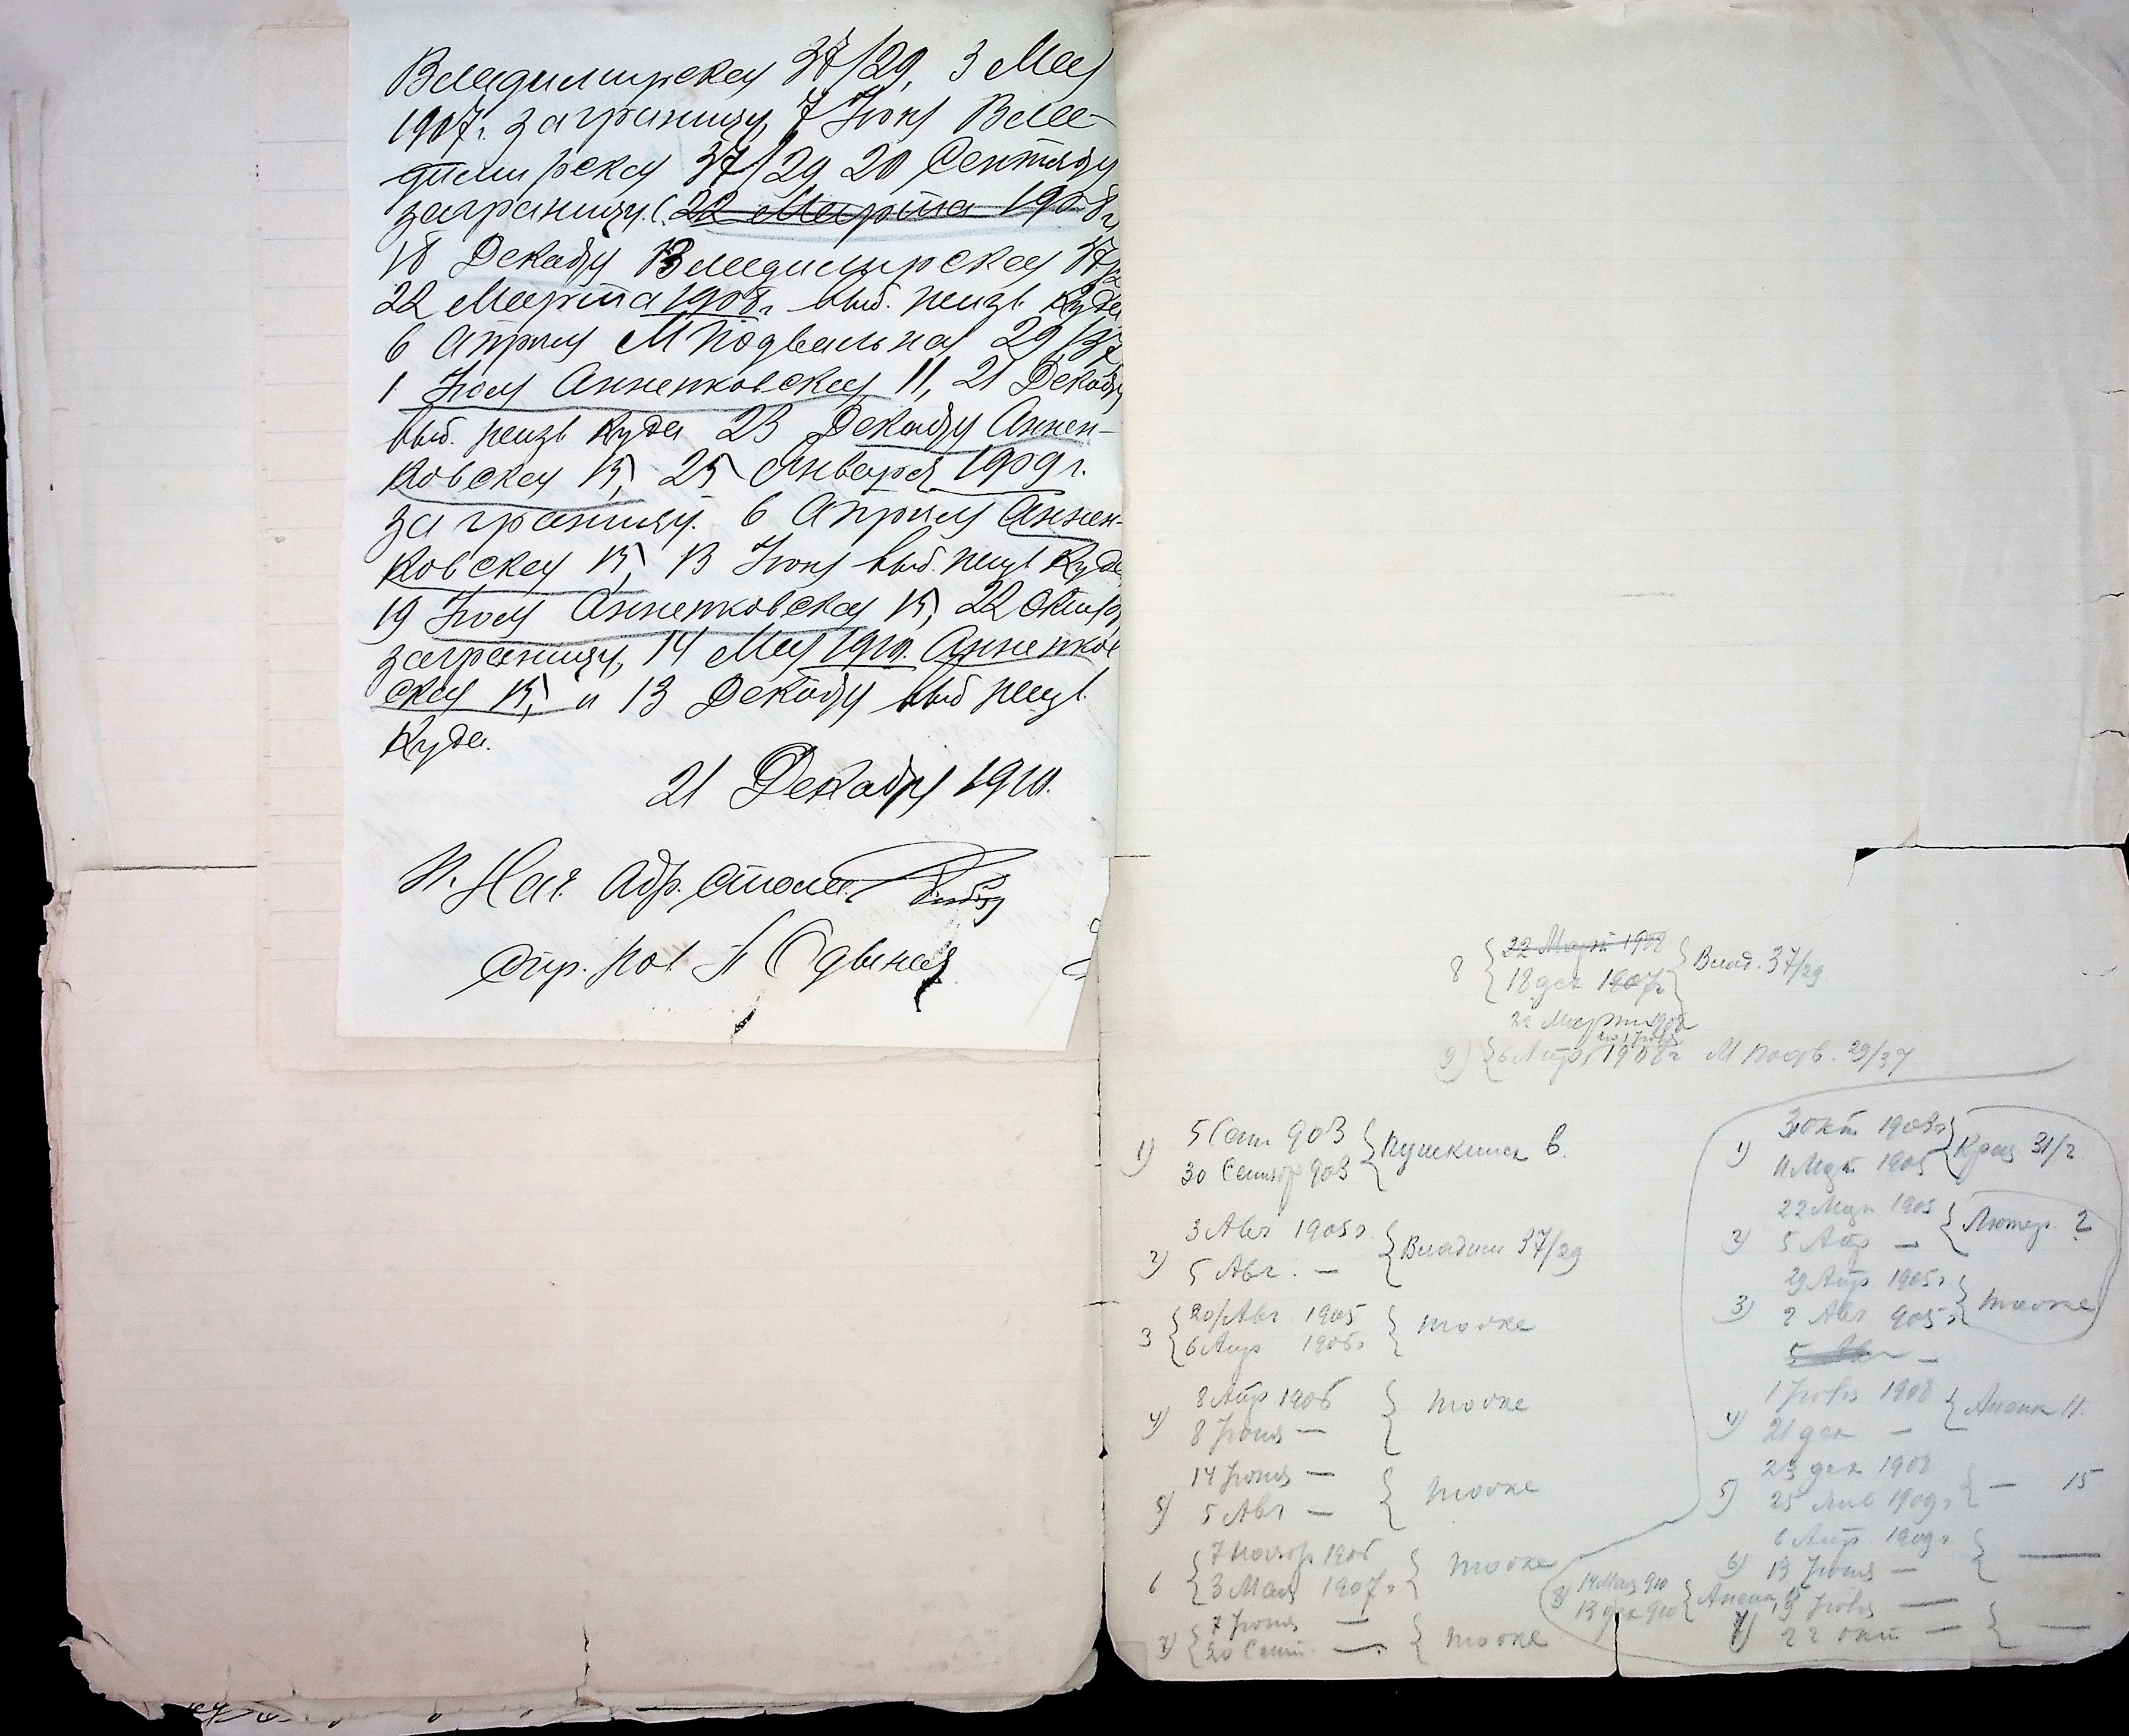 Владимирская 37/29, 3 Мая
1907г. заграницу, 7 Июня Вла-
димирская 37/29 20 Сентября
заграницу. (22 Марта 1908г,
18 Декабря Владимирская 37/2
22 Марта 1908г. выб. неизв. куда
6 Апреля М Подвальная 29/37,
1 Июля Анненковская 11, 21 Декабря
выб. неизв куда 23 Декабря Аннен-
ковская 15, 25 Января 1909г.
заграницу. 6 Апреля Аннен-
ковская 15, 13 Июня выб. неизв куда
19 Июля Анненковская 15, 22 Октяб
заграницу, 14 Мая 1910. Анненков
ская 15, и 13 Декабря выб неизв.
куда.
21 Декабря 1910.
Нач. Адр. Стола
8 22 Март 1908
18 дек 1907г Влад. 37/29
22 Марта 908
до 1 Июля
9) 6 Апр. 1908г М Подв. 29/37
1) 5 Сен 903
30 Сентяб 903 Пушкинск 6.
2) 3 Авг 1905г.
5 Авг. — Владим 37/29
3 20 Авг 1905
6 Апр 1906г тоже
4) 8 Апр 1906
8 Июня — тоже
5) 14 Июня —
5 Авг — тоже
6 7 Ноябр 1906
3 Мая 1907г тоже
7) 7 Июня —
20 Сент. — тоже
1) 3 окт 1903г
11 Март 1905 Крещ 31/2
2) 22 Мар 1905
5 Апр — Лютер. 2
3) 29 Апр 1905г.
2 Авг 905г. тоже
5 Ав —
4) 1 Июля 1908
21 дек — Аненк 11.
5) 23 дек 1908
25 Янв 1909г — 15
6) 6 Апр. 1909г
13 Июня — —
7) 19 Июля —
22 окт — —
8) 14 Мая 910
13 дек 910 Аненк, 15